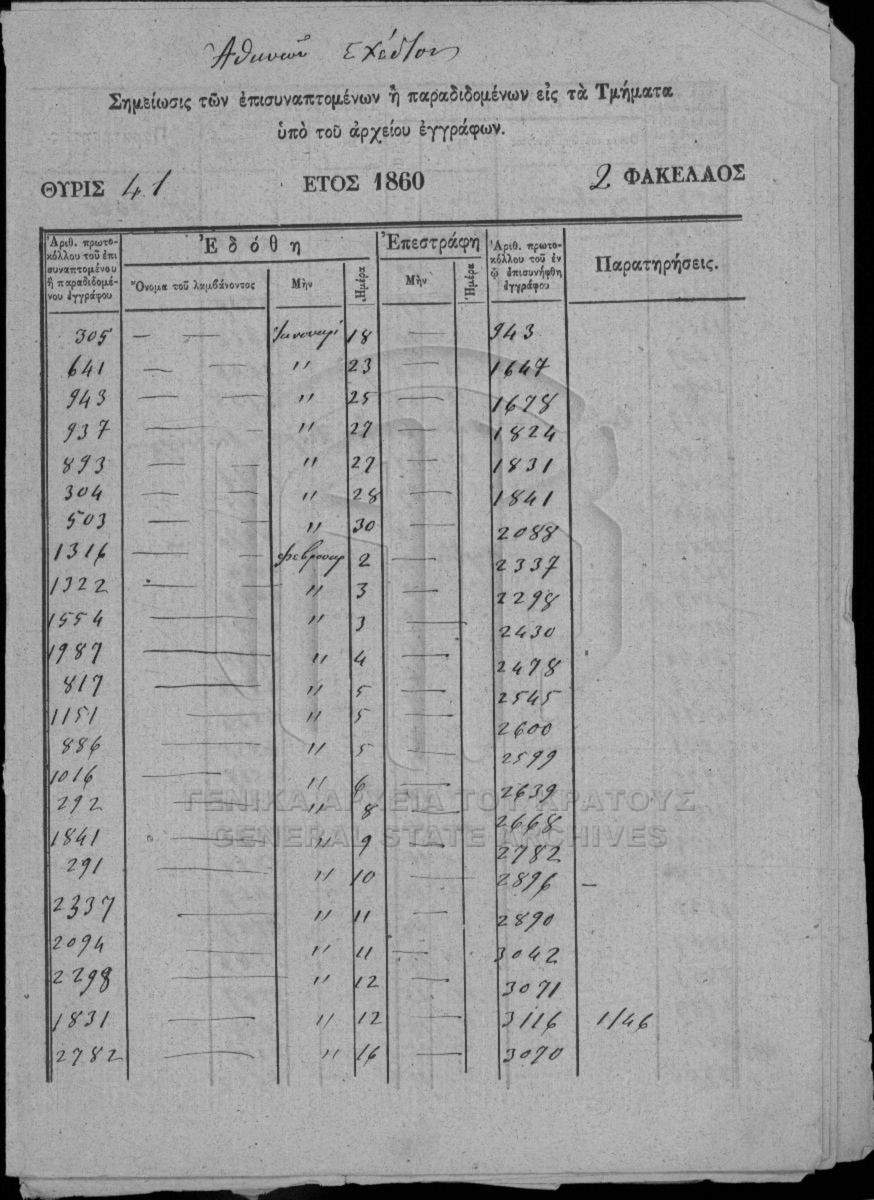 Ἀθηνῶν Σχέδιον
Σημείωσις τῶν ἐπισυναπτομένων ἢ παραδιδομένων εἰς τὰ Τμήματα
ὑπὸ τοῦ ἀρχείου ἐγγράφων.
ΘΥΡΙΣ 41 ΕΤΟΣ 1860 2 ΦΑΚΕΛΛΟΣ
Ἀριθ. πρωτο-
κόλλου τοῦ ἐπι
συναπτομένου
ἢ παραδιδομέ-
νου ἐγγράφου
Ἐδόθη
Ὄνομα τοῦ λαμβάνοντος Μὴν Ἡμέρα
Ἐπεστράφη
Μὴν Ἡμέρα
Ἀριθ. πρωτο-
κόλλου τοῦ ἐν
ᾧ ἐπισυνήφθη
ἐγγράφου
Παρατηρήσεις.
305 — — Ἰανουαρί 18 — 943
641 — — " 23 — 1647
943 — — " 25 — 1678
937 — — " 27 — 1824
893 — — " 27 — 1831
304 — — " 28 — 1841
503 — — " 30 — 2088
1316 — — Φεβρουαρ 2 — 2337
1322 — — " 3 — 2298
1554 — " 3 — 2430
1987 — " 4 — 2478
817 — " 5 — 2545
1151 — " 5 — 2600
886 — " 5 — 2599
1016 — " 6 — 2639
292 — " 8 — 2668
1841 — " 9 — 2782
291 — " 10 — 2896 —
2337 — " 11 — 2890
2094 — " 11 — 3042
2298 — " 12 — 3071
1831 — " 12 — 3116 1/46
2782 — " 16 — 3070
ΓΕΝΙΚΑ ΑΡΧΕΙΑ ΤΟΥ ΚΡΑΤΟΥΣ
GENERAL STATE ARCHIVES